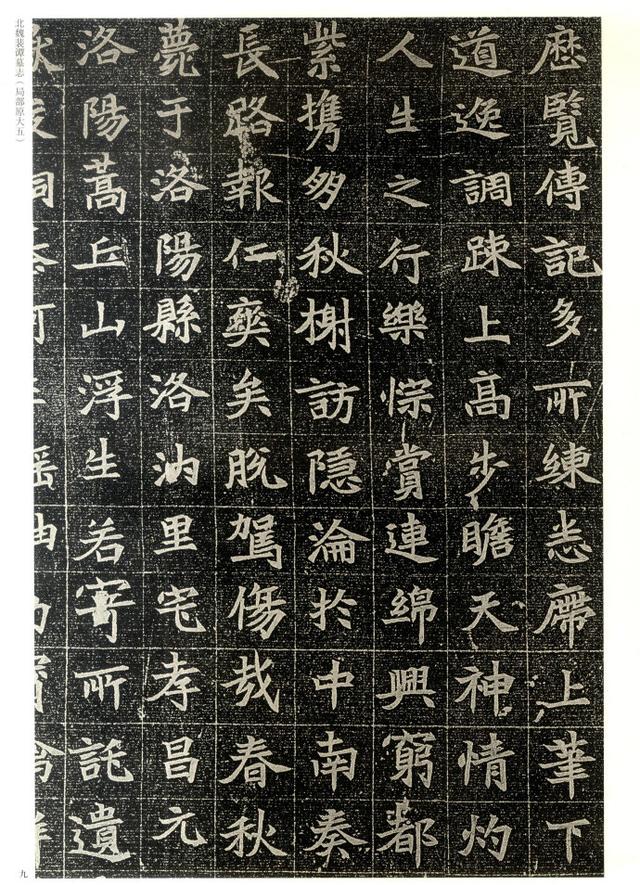 歷覽傳記多所練悉席上筆下
道逸調踈上高步瞻天神情灼
人生之行樂悰賞連綿興窮都
紫携秋榭訪隱淪於中南奏
長路報仁爽矣脫駕傷哉春秋
薨于洛陽縣洛汭里宅孝昌元
洛陽蒿丘山浮生若寄所託遺
北魏裴谭墓志（局部原大五）
九